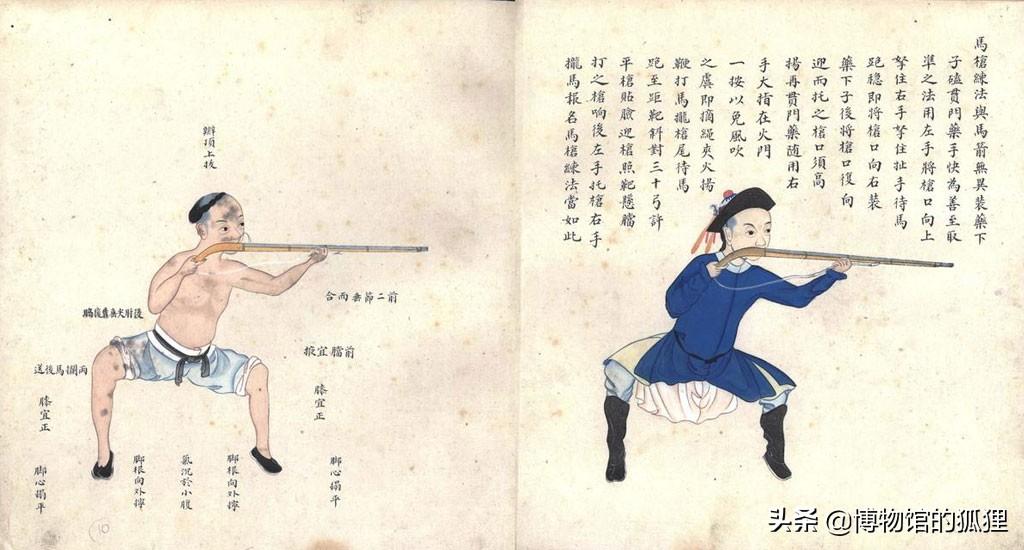 馬槍練法與馬箭無異裝藥下
子磕貫門藥手快為善至取
準之法用左手將槍口向上
拏住右手拏住扯手待馬
跑穩即將槍口向右裝
藥下子後將槍口復向
迎而托之槍口須高
揚再貫門藥随用右
手大指在火門
一按以免風吹
之虞即摘繩夾火揚
鞭打馬攏槍尾待馬
跑至距靶斜對三十弓許
平槍貼臉迎槍照靶
打之槍响後左手托槍右手
攏馬報名馬槍練法當如此
辮頂上拔
前二節垂兩合
後肘尖垂靠後
前膪宜掖
兩馬後送
膝宜正
膝宜正
脚心搨平
脚根向外擰
氣沉於小腹
脚根向外擰
脚心搨平
10
头条 @博物馆的狐狸